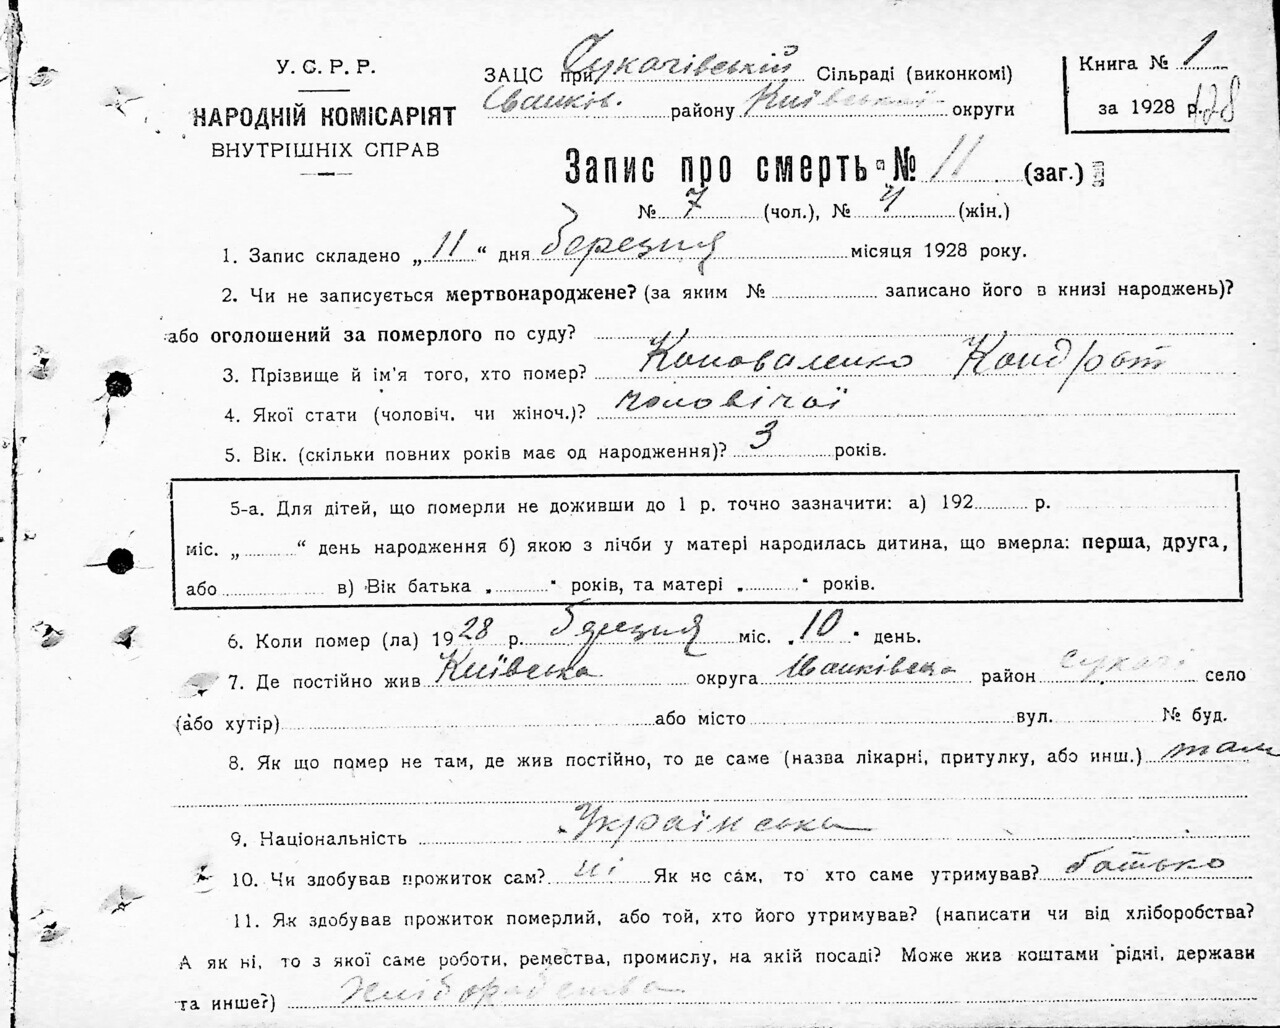 У. С. Р. Р.
НАРОДНІЙ КОМІСАРІЯТ
ВНУТРІШНІХ СПРАВ
ЗАЦС при Сукачівській Сільраді (виконкомі)
Іванків. району Київської округи
Книга № 1
за 1928 р. 128
Запис про смерть № 11 (заг.)
№ 7 (чол.), № 4 (жін.)
1. Запис складено „11“ дня березня місяця 1928 року.
2. Чи не записується мертвонароджене? (за яким № записано його в книзі народжень)?
або оголошений за померлого по суду?
3. Прізвище й ім'я того, хто помер? Коноваленко Кондрат
4. Якої стати (чоловіч. чи жіноч.)? чоловічої
5. Вік. (скільки повних років має од народження)? 3 років.
5-а. Для дітей, що померли не доживши до 1 р. точно зазначити: а) 192 р.
міс. „ “ день народження б) якою з лічби у матері народилась дитина, що вмерла: перша, друга,
або в) Вік батька „ “ років, та матері „ “ років.
6. Коли помер (ла) 1928 р. березня міс. „10“ день.
7. Де постійно жив Київська округа Іванківська район Сукачі село
(або хутір) або місто вул. № буд.
8. Як що помер не там, де жив постійно, то де саме (назва лікарні, притулку, або инш.) там
9. Національність Українська
10. Чи здобував прожиток сам? ні Як не сам, то хто саме утримував? батько
11. Як здобував прожиток померлий, або той, хто його утримував? (написати чи від хліборобства?
А як ні, то з якої саме роботи, ремества, промислу, на якій посаді? Може жив коштами рідні, держави
та инше?) Хліборобства